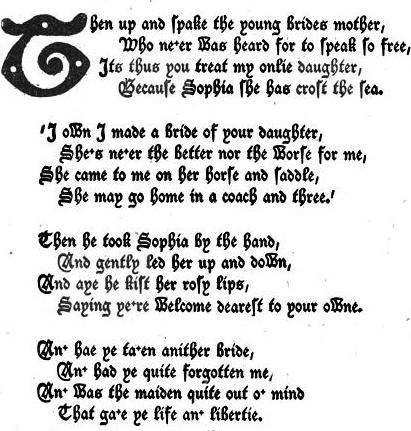 Then up and spake the young brides mother,
Who never was heard for to speak so free,
Its thus you treat my onlie daughter,
Because Sophia she has crost the sea.
'I own I made a bride of your daughter,
She's ne'er the better nor the worse for me,
She came to me on her horse and saddle,
She may go home in a coach and three.'
Then he took Sophia by the hand,
And gently led her up and down,
And aye he kist her rosy lips,
Saying ye're welcome dearest to your owne.
An' hae ye ta'en anither bride,
An' had ye quite forgotten me,
An' was the maiden quite out o' mind
That ga'e ye life an' libertie.